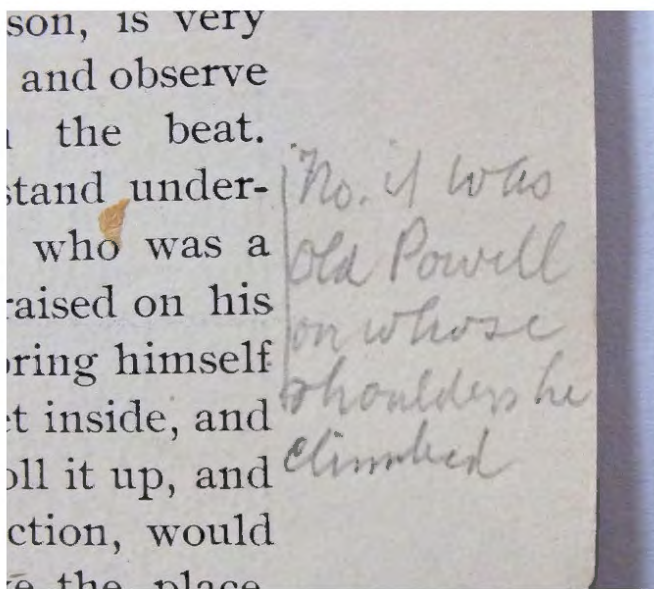 son, is very
and observe
the beat.
stand under-
who was a
raised on his
oring himself
et inside, and
oll it up, and
ction, would
the place
No. it was
Old Powell
on whose
shoulders he
climbed